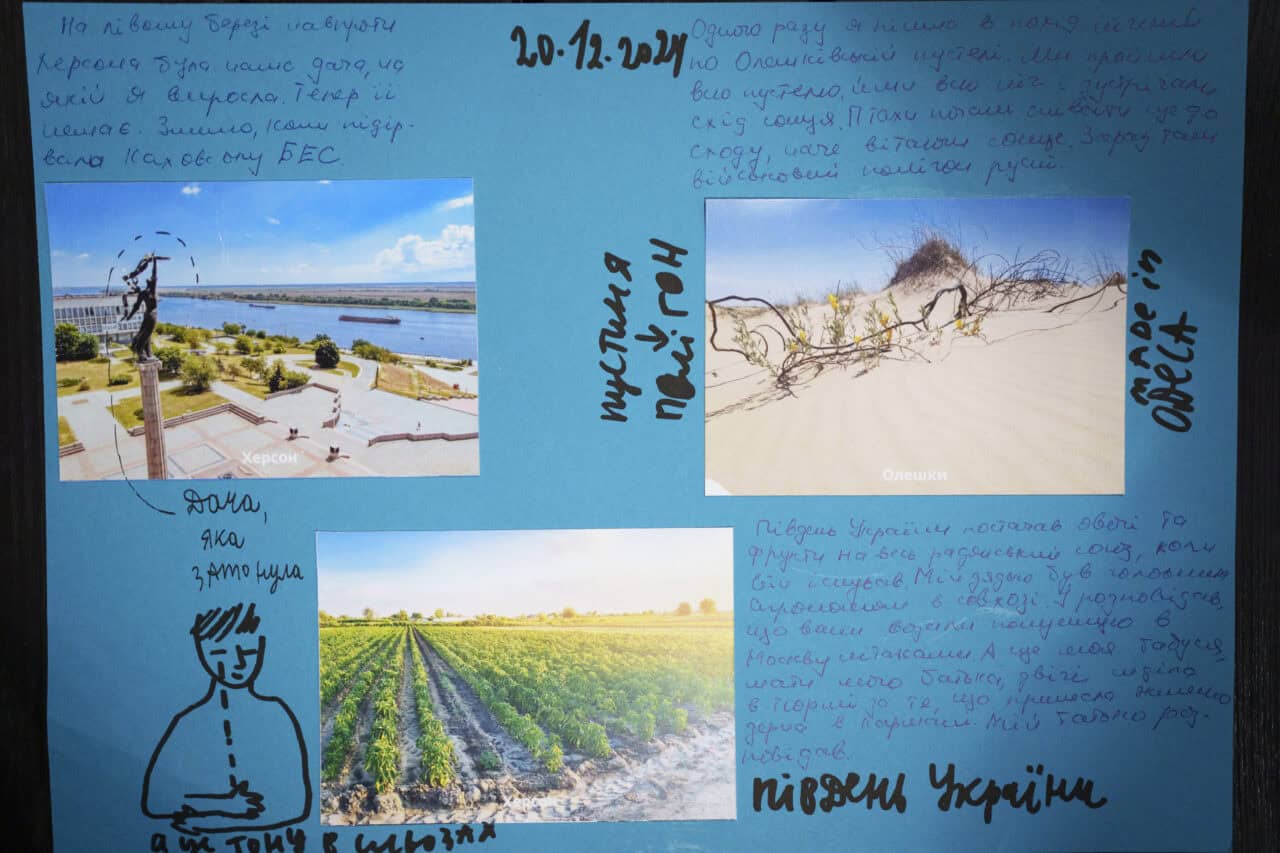 На лівому березі навпроти
Херсона була наша дача, на
якій я виросла. Тепер її
немає. Змило, коли підір-
вали Каховську ГЕС.
20.12.2024
Одного разу я пішла в похід
по Олешківській пустелі. Ми пройшли
всю пустелю, йшли всю ніч і зустрічали
схід сонця. Птахи почали співати ще до
сходу, наче вітаючи сонце. Зараз там
військовий полігон русні.
Херсон
пустиня
полігон
Олешки
made in
ОДЕСА
Дача,
яка
затонула
Південь України постачав овочі та
фрукти на весь радянський союз, коли
він існував. Мій дядько був головним
агрономом в совхозі. Й розповідав,
що вони возили полуницю в
Москву літаками. А ще моя бабуся,
мати мого батька, двічі сиділа
в тюрмі за те, що принесла жменю
зерна в кармані. Мій батько роз-
повідав.
Херсон
південь України
а це тону в сльозах